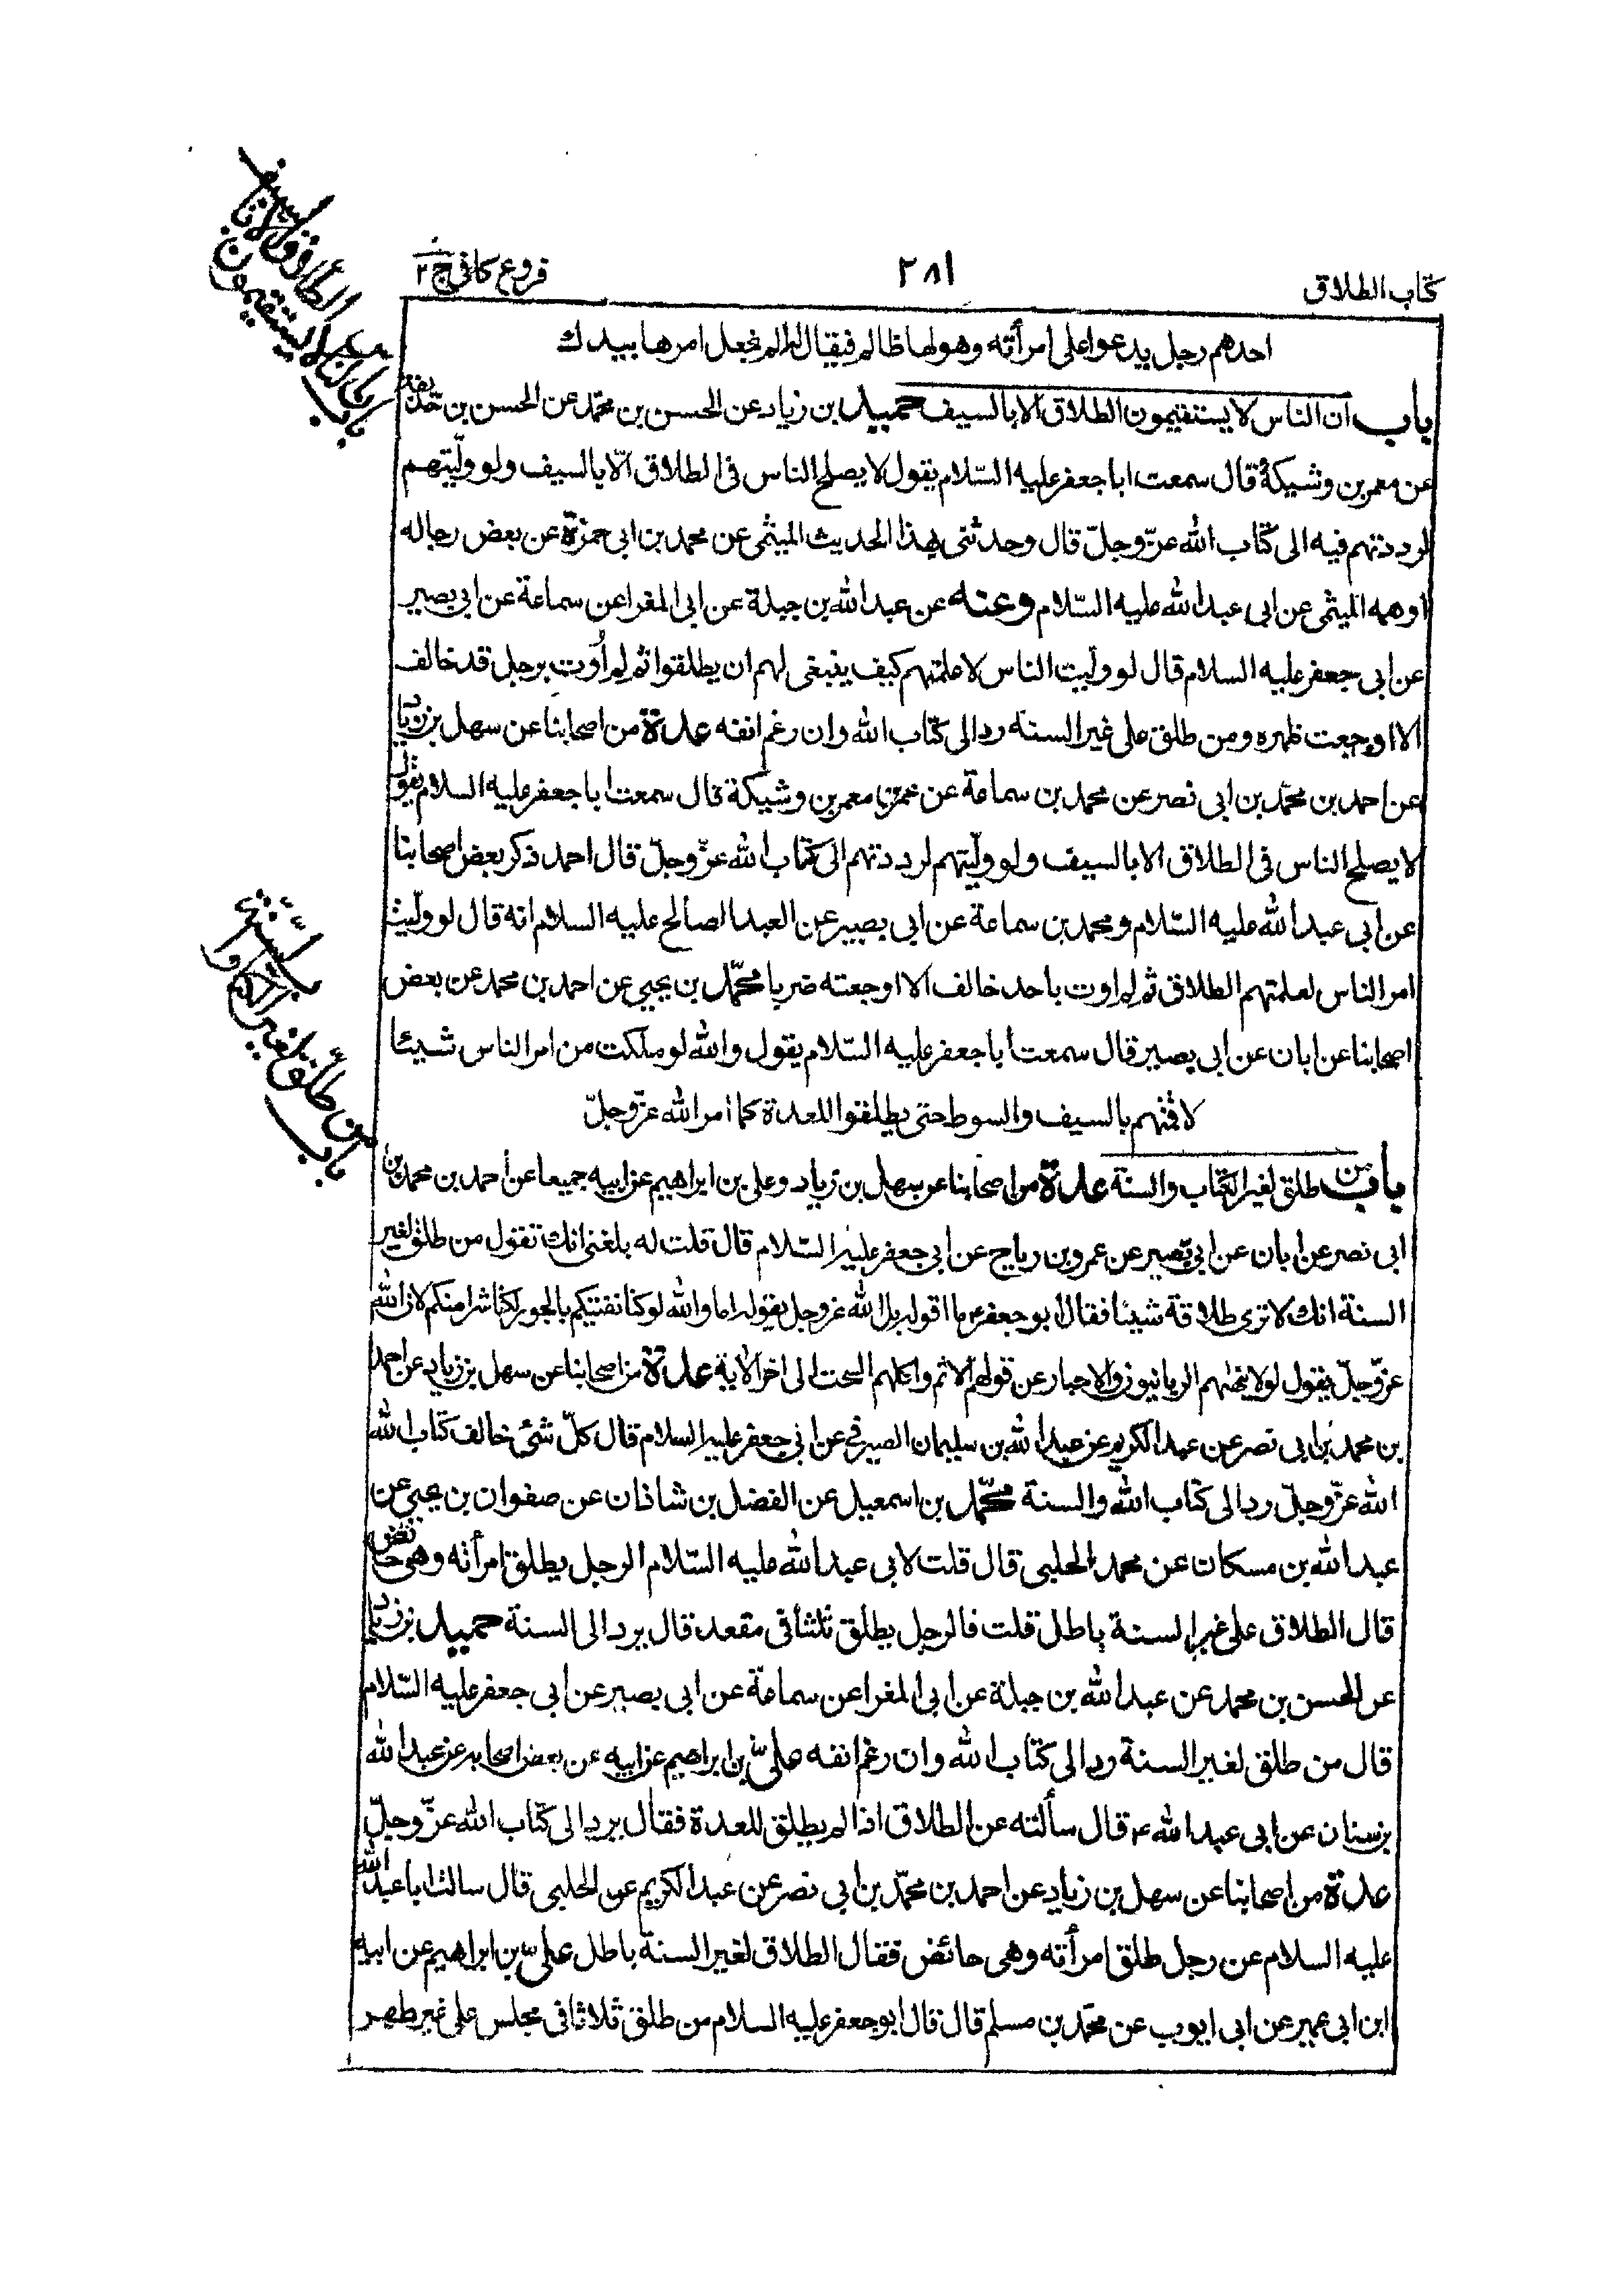 كتاب الطلاق
٢٨١
فروع كافى ج ٢
احدهم رجل يدعوا على امرأته وهو لها ظالم فيقال له الم نجعل امرها بيدك
باب ان الناس لا يستقيمون الطلاق الا بالسيف حميد بن زياد عن الحسن بن محمد عن الحسن بن حذيفة
عن معمر بن وشيكة قال سمعت ابا جعفر عليه السلام يقول لا يصلح الناس فى الطلاق الّا بالسيف ولو ولّيتهم
لرددتهم فيه الى كتاب الله عزّ وجلّ قال وحدثنى بهذا الحديث الميثمى عن محمد بن ابى حمزة عن بعض رجاله
اوهمه الميثمى عن ابى عبد الله عليه السّلام وعنه عن عبد الله بن جبلة عن ابى المغرا عن سماعة عن ابى بصير
عن ابى جعفر عليه السلام قال لو وليت الناس لاعلمتهم كيف ينبغى لهم ان يطلقوا ثم لم أوت برجل قد خالف
الا اوجعت ظهره ومن طلق على غير السنة رد الى كتاب الله وان رغم انفه عدة من اصحابنا عن سهل بن زياد
عن احمد بن محمّد بن ابى نصر عن محمد بن سماعة عن عمر بن معمر بن وشيكة قال سمعت ابا جعفر عليه السلام يقول
لا يصلح الناس فى الطلاق الا بالسيف ولو ولّيتهم لرددتهم الى كتاب الله عزّ وجلّ قال احمد ذكر بعض اصحابنا
عن ابى عبد الله عليه السّلام ومحمد بن سماعة عن ابى بصير عن العبد الصالح عليه السلام انه قال لو ولّيت
امر الناس لعلمتهم الطلاق ثم لم اوت باحد خالف الا اوجعته ضربا محمّد بن يحيى عن احمد بن محمد عن بعض
اصحابنا عن ابان عن ابى بصير قال سمعت أبا جعفر عليه السّلام يقول والله لو ملكت من امر الناس شيئا
لاقمتهم بالسيف والسوط حتى يطلقوا للعدة كما امر الله عزّ وجلّ
باب من طلق لغير الكتاب والسنة عدة من اصحابنا عن سهل بن زياد وعلى بن ابراهيم عن ابيه جميعا عن احمد بن محمد بن
ابى نصر عن ابان عن ابى بصير عن عمرو بن رياح عن ابى جعفر عليه السّلام قال قلت له بلغنى انك تقول من طلق لغير
السنة انك لا ترى طلاقه شيئا فقال ابو جعفر ع ما اقوله بل الله عز وجل يقوله اما والله لو كنا نفتيكم بالجور لكنا شرا منكم لان الله
عزّ وجلّ يقول لولا ينهيهم الربانيون والاحبار عن قولهم الاثم واكلهم السحت الى اخر الاية عدة من اصحابنا عن سهل بن زياد عن احمد
بن محمد بن ابى نصر عن عبد الكريم عن عبد الله بن سليمان الصيرفى عن ابى جعفر عليه السلام قال كلّ شئ خالف كتاب الله
الله عزّ وجلّ رد الى كتاب الله والسنة محمّد بن اسمعيل عن الفضل بن شاذان عن صفوان بن يحيى عن
عبد الله بن مسكان عن محمد الحلبى قال قلت لابى عبد الله عليه السّلام الرجل يطلق امرأته وهى حائض
قال الطلاق على غير السنة باطل قلت فالرجل يطلق ثلثا فى مقعد قال يرد الى السنة حميد بن زياد
عن الحسن بن محمد عن عبد الله بن جبلة عن ابى المغرا عن سماعة عن ابى بصير عن ابى جعفر عليه السّلام
قال من طلق لغير السنة رد الى كتاب الله وان رغم انفه علىّ بن ابراهيم عن ابيه عن بعض اصحابه عن عبد الله
بن سنان عن ابى عبد الله ع قال سألته عن الطلاق اذا لم يطلق للعدة فقال يرد الى كتاب الله عزّ وجلّ
عدة من اصحابنا عن سهل بن زياد عن احمد بن محمّد بن ابى نصر عن عبد الكريم عن الحلبى قال سالت ابا عبد الله
عليه السلام عن رجل طلق امرأته وهى حائض فقال الطلاق لغير السنة باطل علىّ بن ابراهيم عن ابيه
ابن ابى عمير عن ابى ايوب عن محمّد بن مسلم قال قال ابو جعفر عليه السلام من طلق ثلاثا فى مجلس على غير طهر
باب ان الناس لا يستقيمون
الطلاق الا بالسيف
باب
من طلق لغير الكتاب و
السنة